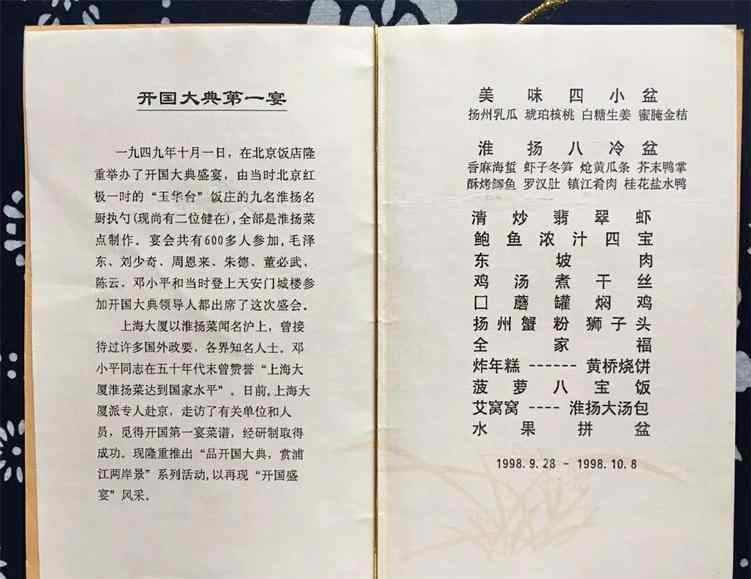 开国大典第一宴
一九四九年十月一日，在北京饭店隆
重举办了开国大典盛宴，由当时北京红
极一时的“玉华台”饭庄的九名淮扬名
厨执勺(现尚有二位健在),全部是淮扬菜
点制作。宴会共有600多人参加,毛泽
东、刘少奇、周恩来、朱德、董必武、
陈云、邓小平和当时登上天安门城楼参
加开国大典领导人都出席了这次盛会。
上海大厦以淮扬菜闻名沪上，曾接
待过许多国外政要，各界知名人士。邓
小平同志在五十年代末曾赞誉“上海大
厦淮扬菜达到国家水平”。日前,上海大
厦派专人赴京，走访了有关单位和人
员，觅得开国第一宴菜谱，经研制取得
成功。现隆重推出“品开国大典，赏浦
江两岸景”系列活动,以再现“开国盛
宴”风采。
美味四小盆
扬州乳瓜 琥珀核桃 白糖生姜 蜜腌金桔
淮扬八冷盆
香麻海蜇 虾子冬笋 炝黄瓜条 芥末鸭掌
酥烤鲫鱼 罗汉肚 镇江肴肉 桂花盐水鸭
清炒翡翠虾
鲍鱼浓汁四宝
东坡肉
鸡汤煮干丝
口蘑罐焖鸡
扬州蟹粉狮子头
全家福
炸年糕 ------ 黄桥烧饼
菠萝八宝饭
艾窝窝 ---- 淮扬大汤包
水果拼盆
1998.9.28 - 1998.10.8